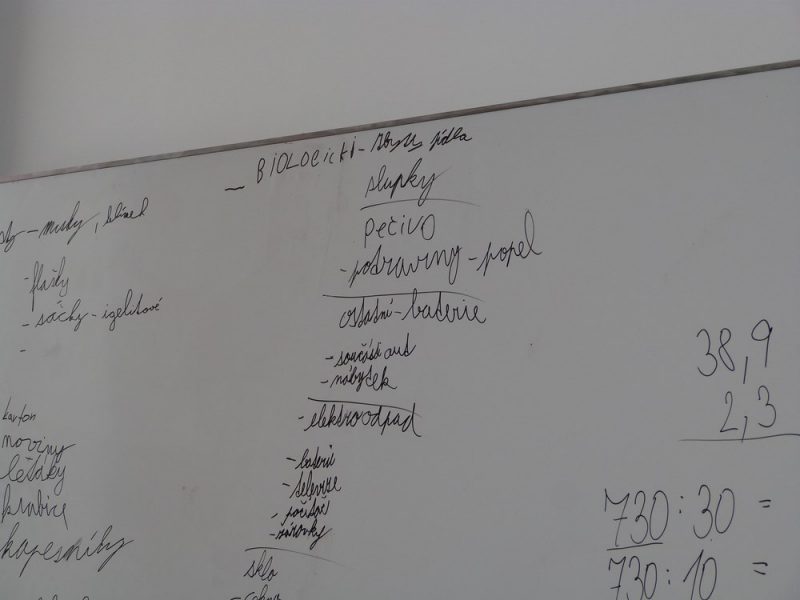 - BIOLOGICKI - zbytky jídla
slupky
pečivo
- potraviny - popel
ostatní - baterie
- součásti aut
- nábytek
- elektroodpad
- baterie
- televize
- počítač
- žárovky
sklo
- misky,
- flašky
- sáčky - igelitové
-
karton
noviny
letáky
krabice
kapesníky
38,9
2,3
730 : 30 =
730 : 10 =